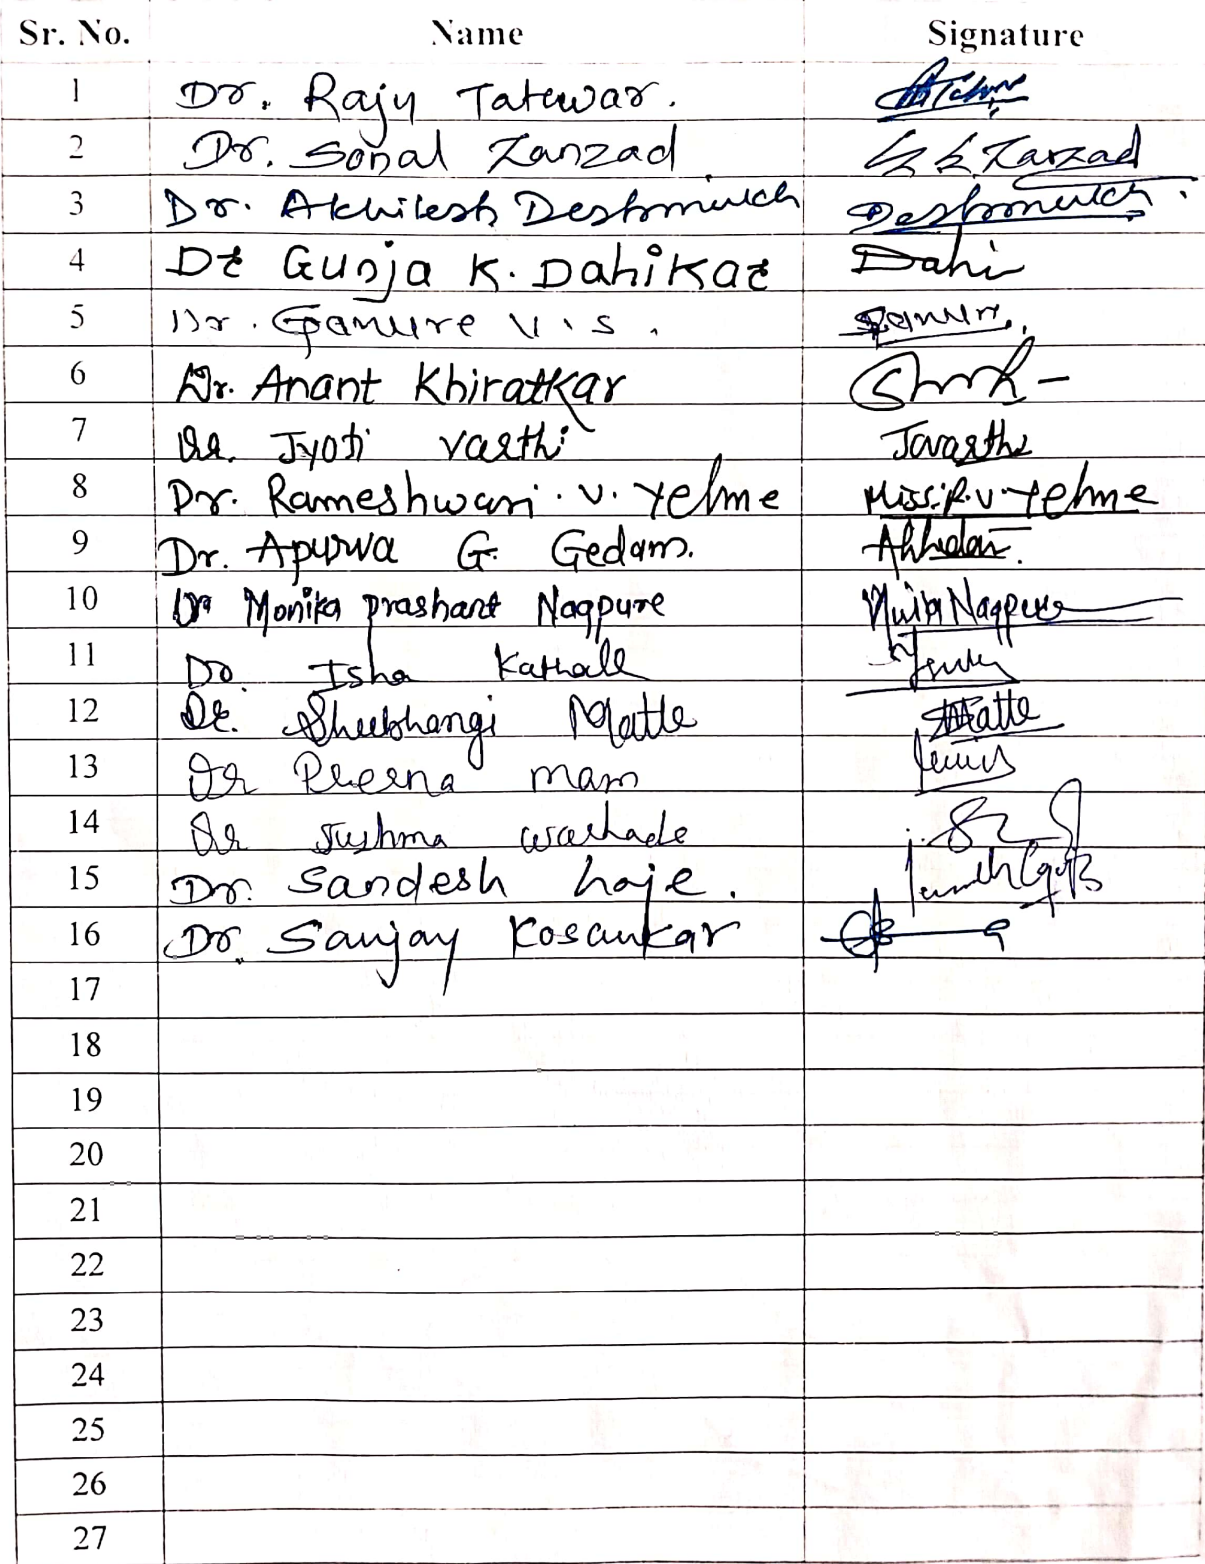 Sr. No. Name Signature
1 Dr. Raju Tatewar.
2 Dr. Sonal Zanzad S S Zarzad
3 Dr. Akhilesh Deshmukh Deshmukh.
4 Dr Gunja K. Dahikar Dahi
5 Dr. Ganure V.S. Ganur.
6 Dr. Anant Khiratkar
7 Dr. Jyoti Varthi Jvarthi
8 Dr. Rameshwari. V. Yelme Miss. R.V. Yelme
9 Dr. Apurwa G. Gedam.
10 Dr Monika prashant Nagpure Nagpure
11 Dr. Isha Kathale
12 Dr. Shubhangi Matte Matte
13 Dr Prerna mam
14 Dr Sushma warhade
15 Dr. Sandesh
16 Dr. Sanjay Kosankar
17
18
19
20
21
22
23
24
25
26
27